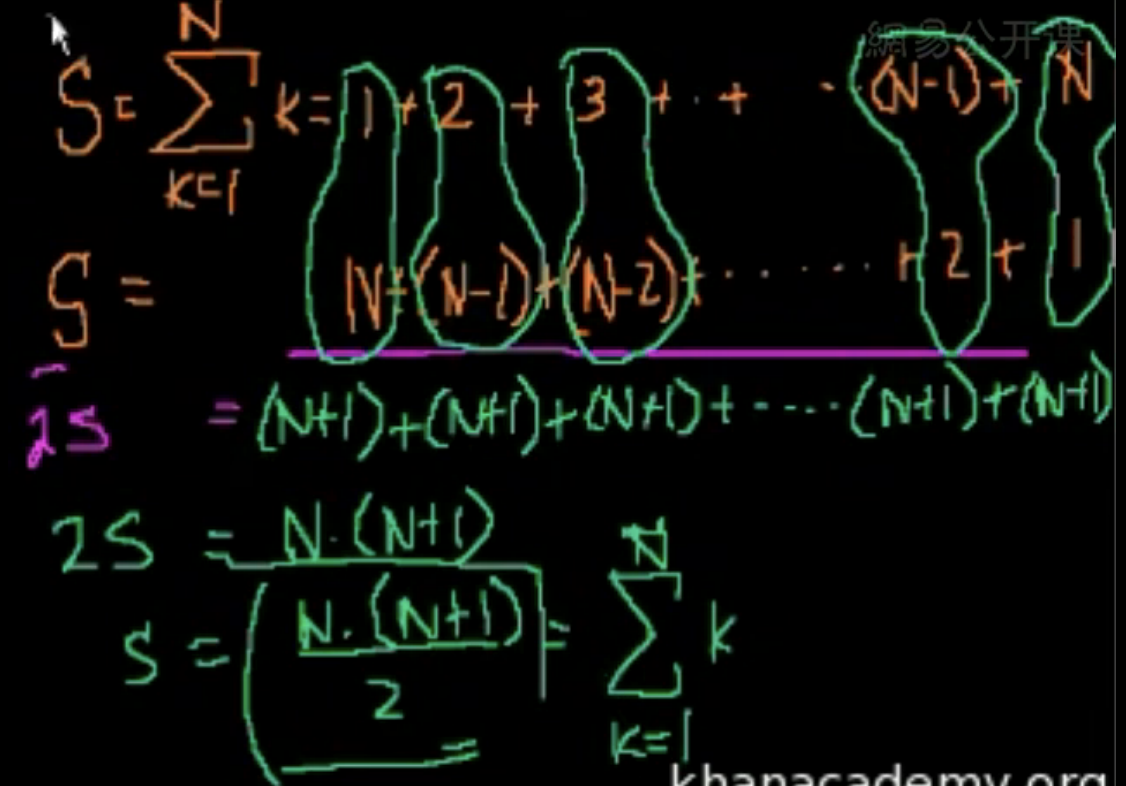 網易公开课
N
S = ∑ k = 1 + 2 + 3 + · · + · (N-1) + N
k=1
S = N + (N-1) + (N-2) + · · · · · · + 2 + 1
2S = (N+1) + (N+1) + (N+1) + - - - - (N+1) + (N+1)
2S = N · (N+1)
N
S = N · (N+1) / 2 = ∑ k
k=1
khanacademy.org